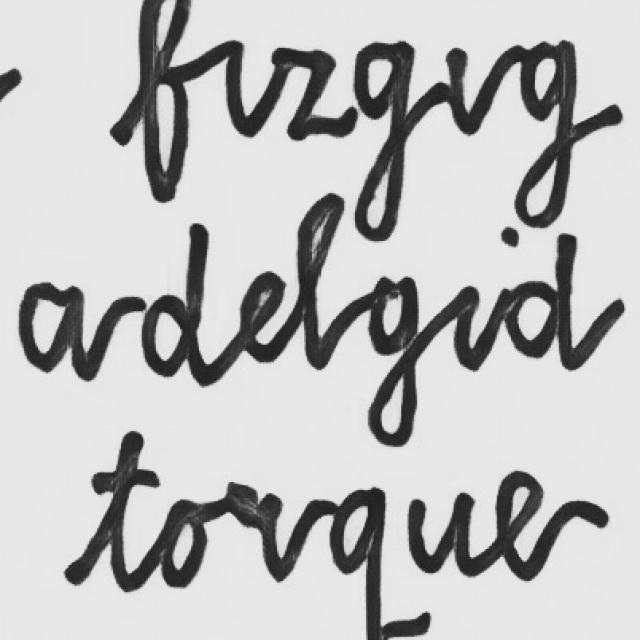 fizgig
adelgid
torque